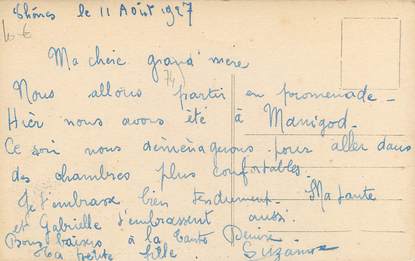 Thônes le 11 Août 1927
10 €
Ma chère grand' mère
(74)
Nous allons partir en promenade -
Hier nous avons été à Manigod -
Ce soir nous déménageons pour aller dans
des chambres plus confortables.
Je t'embrasse bien tendrement - Ma tante
et Gabrielle t'embrassent aussi.
Bons baisers à la tante Denise -
Ta petite fille. Suzanne